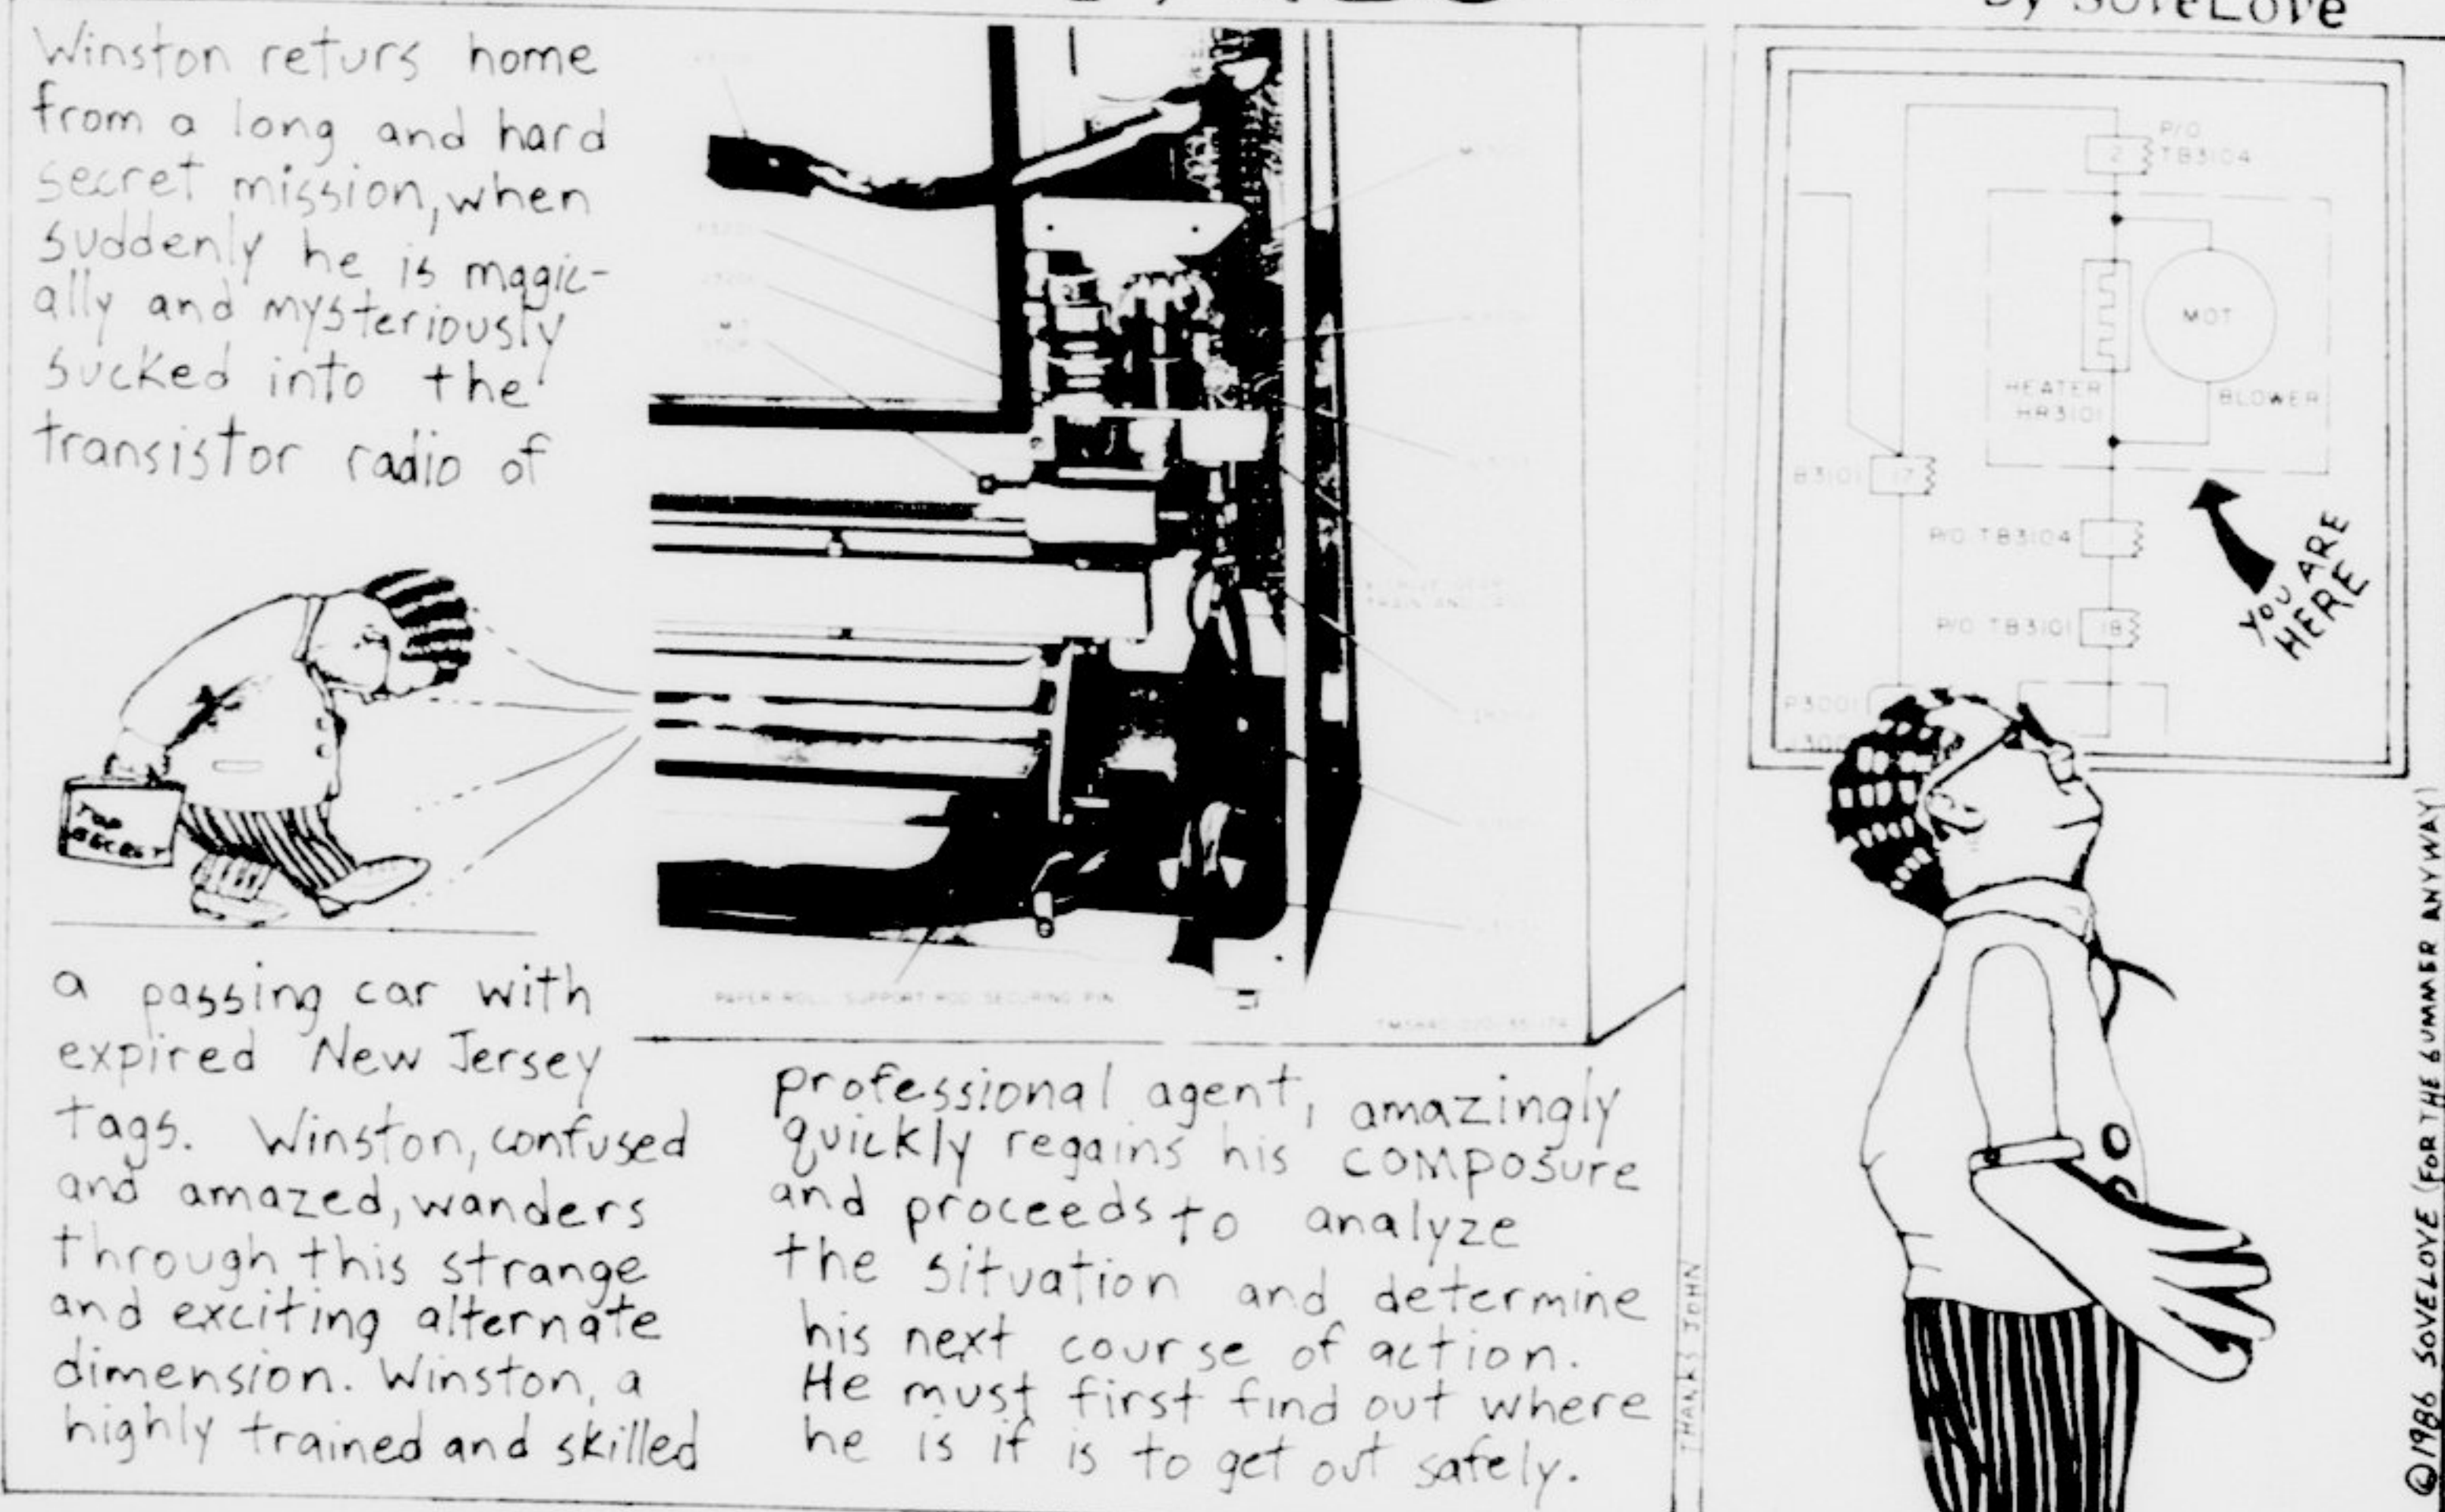 by SoveLove
Winston returs home
from a long and hard
secret mission, when
suddenly he is magic-
ally and mysteriously
sucked into the
transistor radio of
TOP
SECRET
a passing car with
expired New Jersey
tags. Winston, confused
and amazed, wanders
through this strange
and exciting alternate
dimension. Winston, a
highly trained and skilled
PAPER ROLL SUPPORT ROD SECURING PIN
professional agent, amazingly
quickly regains his composure
and proceeds to analyze
the situation and determine
his next course of action.
He must first find out where
he is if is to get out safely.
THANKS JOHN
P/O
TB3104
2
MOT
HEATER
HR3101
BLOWER
B3101
17
P/O TB3104
P/O TB3101
18
P3001
YOU ARE
HERE
©1986 SOVELOVE (FOR THE SUMMER ANYWAY)